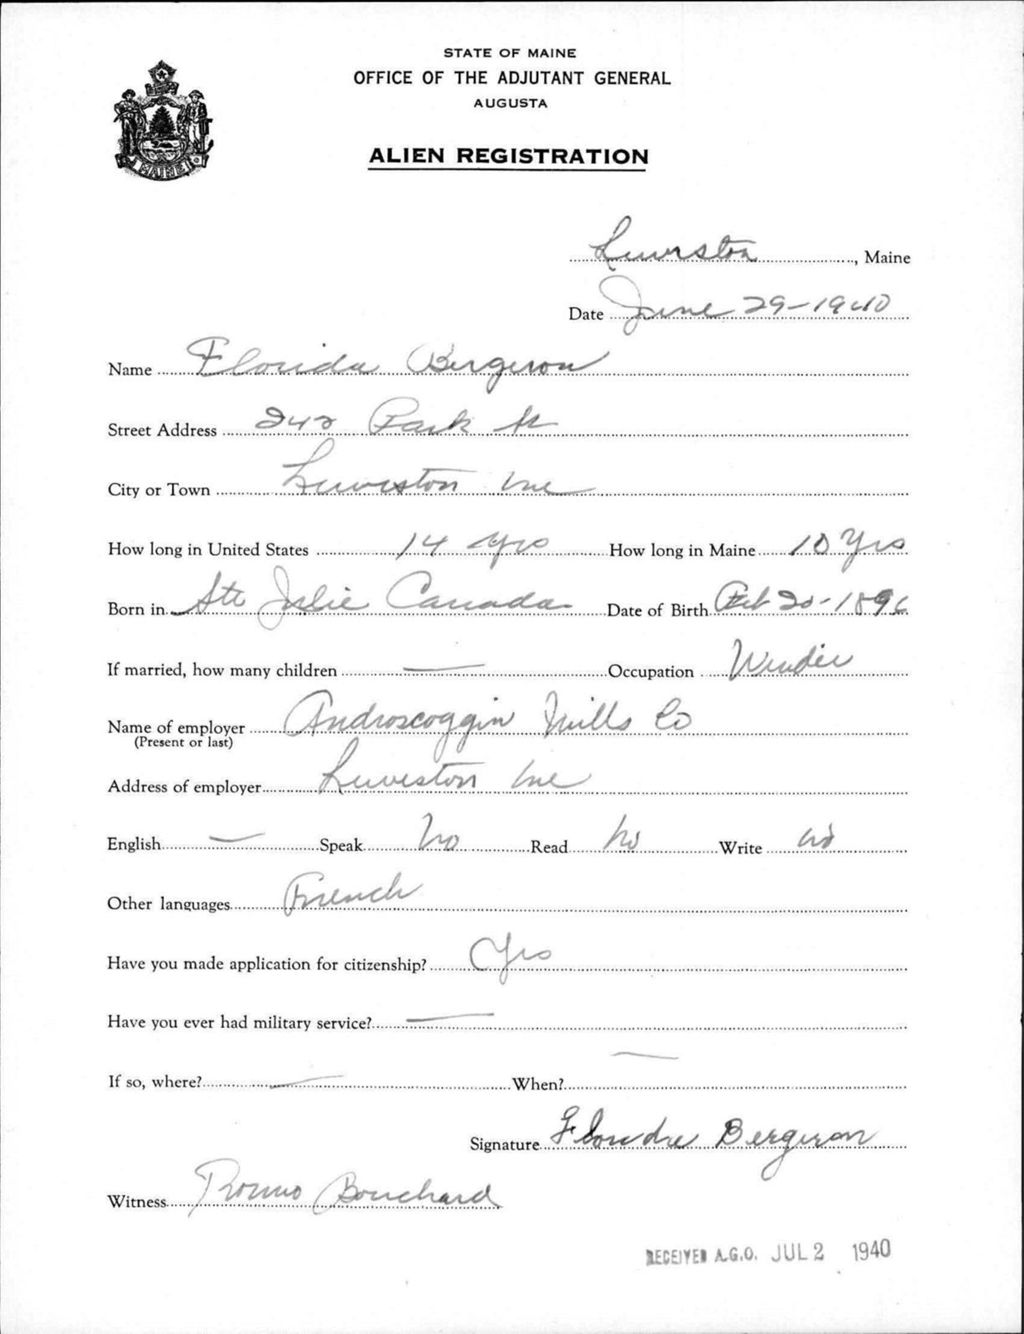 STATE OF MAINE
OFFICE OF THE ADJUTANT GENERAL
AUGUSTA
ALIEN REGISTRATION
MAINE
Lewiston, Maine
Date June 29-1940
Name Florida Bergeron
Street Address 242 Park St
City or Town Lewiston Me
How long in United States 14 Yrs How long in Maine 10 Yrs
Born in Ste Julie Canada Date of Birth Feb 20-1896
If married, how many children — Occupation Winder
Name of employer Androscoggin Mills Co
(Present or last)
Address of employer Lewiston Me
English — Speak No Read No Write No
Other languages French
Have you made application for citizenship? Yes
Have you ever had military service? —
If so, where? — When? —
Signature Bergeron
Witness Bouchard
RECEIVED A.G.O. JUL 2 1940